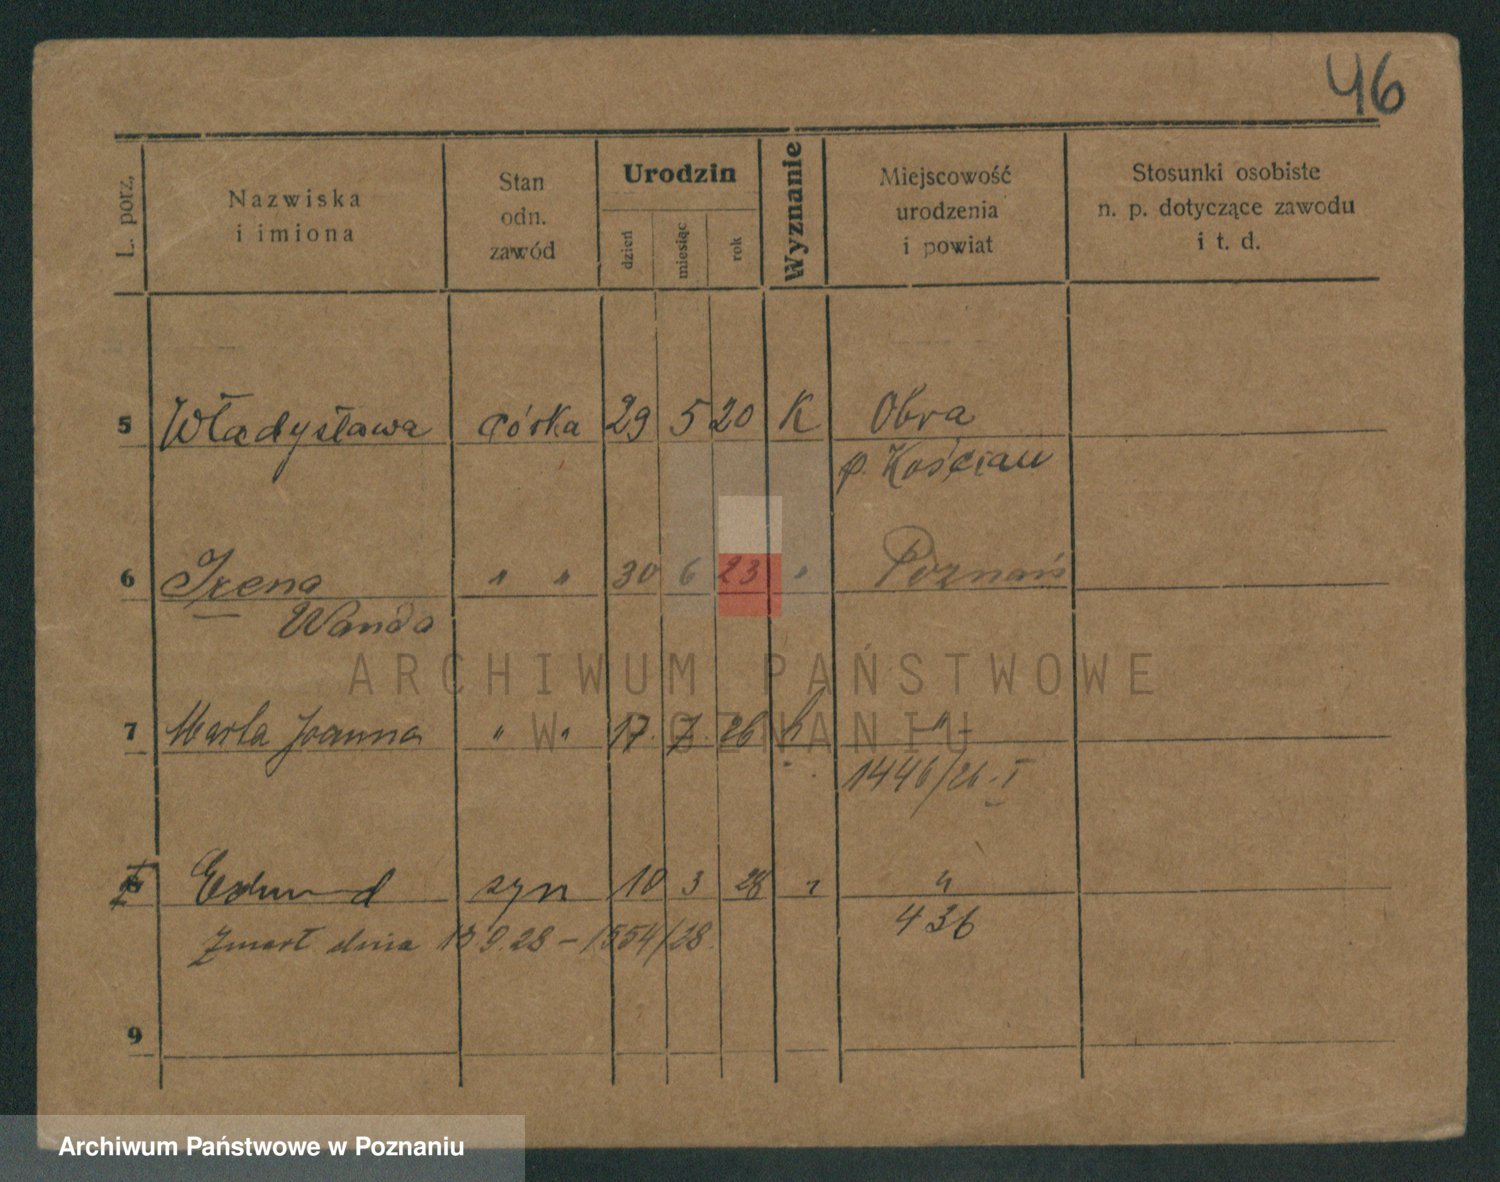 46
L. porz.
Nazwiska
i imiona
Stan
odn.
zawód
Urodzin
dzień
miesiąc
rok
Wyznanie
Miejscowość
urodzenia
i powiat
Stosunki osobiste
n. p. dotyczące zawodu
i t. d.
5 Władysława córka 29 5 20 K Obra
p. Kościan
6 Irena " " 30 6 23 " Poznań
Wanda
ARCHIWUM PAŃSTWOWE
W POZNANIU
7 Marta Joanna " " 17. 7. 26 "
1446/26. I
Edmund syn 10 3 28 " "
436
Zmarł dnia 13 9.28 – 1554/28.
9
Archiwum Państwowe w Poznaniu